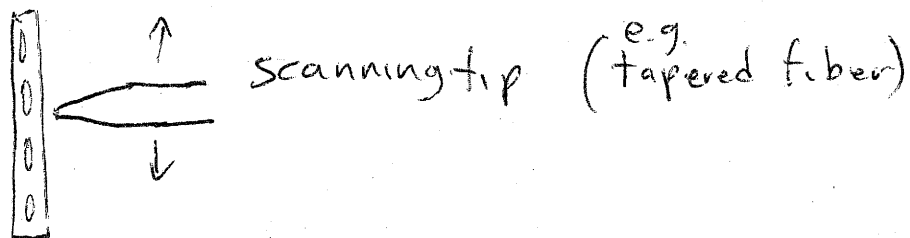 e.g.
scanning tip (tapered fiber)